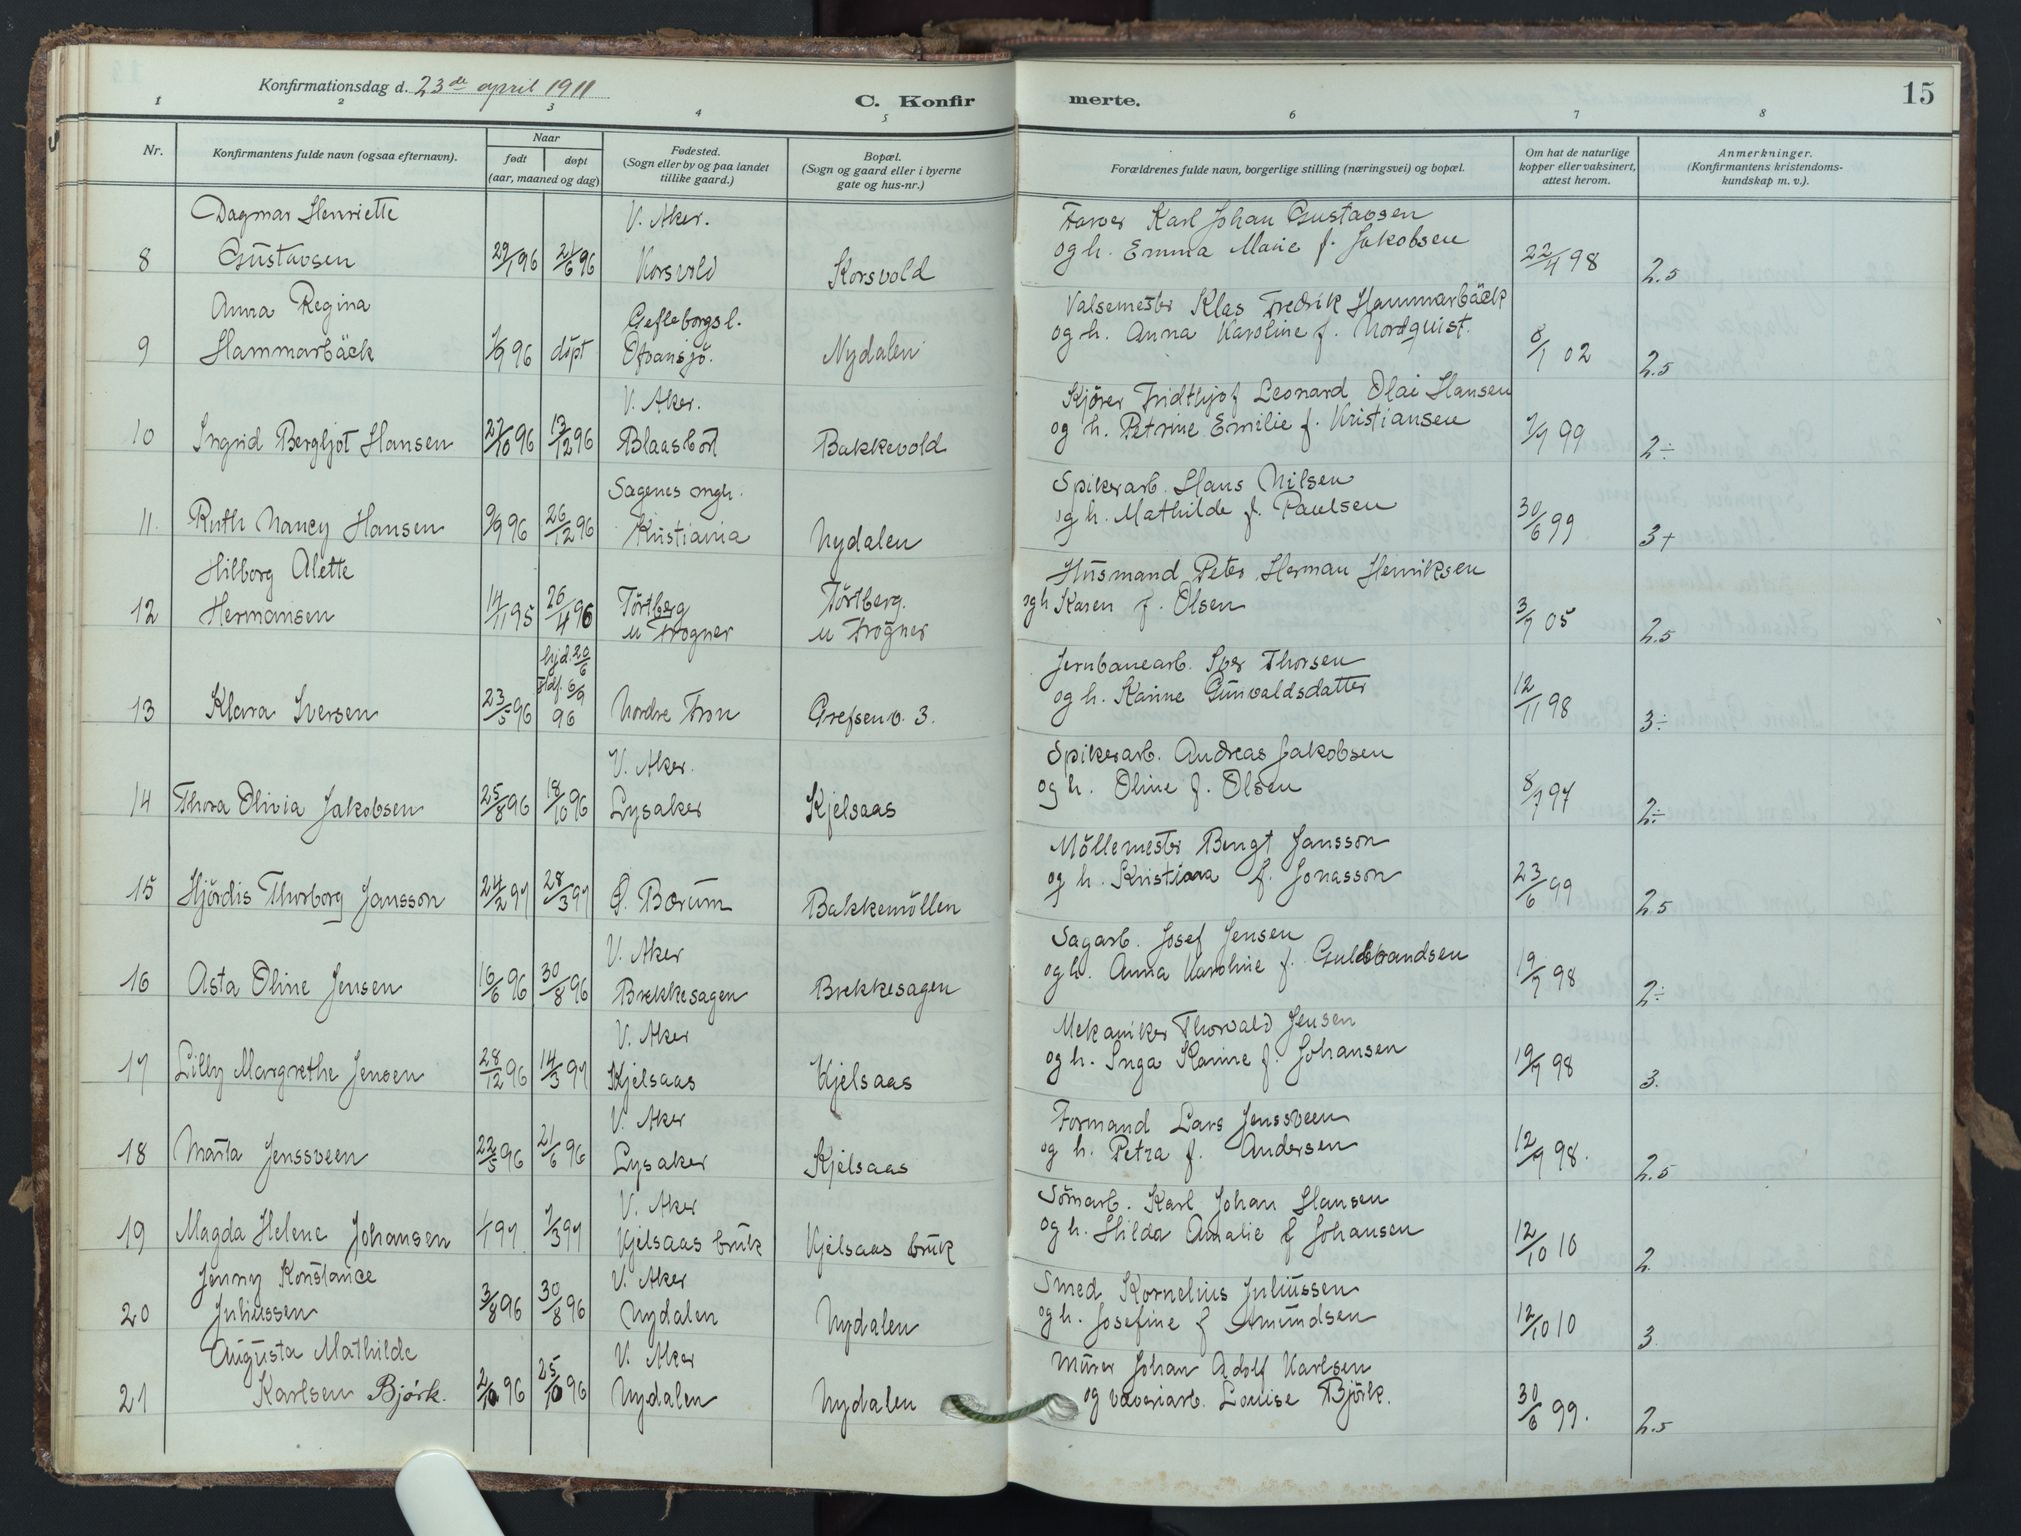 Konfirmationsdag d. 23de april 1911
C. Konfir merte. 15
1 2 3 4 5 6 7 8
Nr.
Konfirmantens fulde navn (ogsaa efternavn).
Naar
født døpt
(aar, maaned og dag)
Fødested.
(Sogn eller by og paa landet
tillike gaard.)
Bopæl.
(Sogn og gaard eller i byerne
gate og hus-nr.)
Forældrenes fulde navn, borgerlige stilling (næringsvei) og bopæl.
Om hat de naturlige
kopper eller vaksinert,
attest herom.
Anmerkninger.
(Konfirmantens kristendoms-
kundskap m. v.).
Dagmar Henriette V. Aker. Farver Karl Johan Gustavsen
8 Gustavsen 29/1 96 21/6 96 Korsvold Korsvold og h. Emma Marie f. Jakobsen 22/4 98 2.5
Anna Regina Gefleborgsl. Valsemester Klas Fredrik Hammarbäck
9 Hammarbäck 7/9 96 døpt Ofvansjö. Nydalen og h. Anna Karoline f. Nordquist. 8/1 02 2.5
V. Aker. Kjører Fridthjof Leonard Olai Hansen
10 Ingrid Bergljot Hansen 27/10 96 13/12 96 Blaasbort Bakkevold og h. Petrine Emilie f. Kristiansen 7/9 99 2÷
Sagenes mgh. Spikerarb. Hans Nilsen
11. Ruth Nancy Hansen 9/9 96 26/12 96 Kristiania Nydalen og h. Mathilde f. Paulsen 30/6 99 3+
Hilborg Alette Tørtberg Tørtberg. Husmand Peter Herman Henriksen
12 Hermansen 14/11 95 26/4 96 u Frogner u Frogner og h Karen f. Olsen 3/7 05 2.5
hjd. 20/6 Jernbanearb. Iver Thorsen
13 Klara Iversen 23/5 96 stdf. 6/9 96 Nordre Fron Grefsenv. 3. og h. Karine Gunvaldsdatter 12/11 98 3÷
V. Aker. Spikerarb. Andreas Jakobsen
14 Thora Olivia Jakobsen 25/8 96 18/10 96 Lysaker Kjelsaas og h. Oline f. Olsen 8/7 97 2÷
Møllemester Bengt Jansson
15 Hjördis Thorborg Jansson 24/2 97 28/3 97 Ø. Bærum Bakkemøllen og h. Kristiana f. Jonasson 23/6 99 2.5
V. Aker Sagarb. Josef Jensen
16 Asta Oline Jensen 16/6 96 30/8 96 Brekkesagen Brekkesagen og h. Anna Karoline f. Guldbrandsen 19/7 98 2÷
V. Aker Mekaniker Thorvald Jensen
17 Lilly Margrethe Jensen 28/12 96 14/3 97 Kjelsaas Kjelsaas og h. Inga Karine f. Johansen 19/9 98 3.
V. Aker Formand Lars Jenssveen
18 Marta Jenssveen 22/5 96 21/6 96 Lysaker Kjelsaas og h. Petra f. Andersen 12/9 98. 2.5
V. Aker Sømarb. Karl Johan Hansen
19 Magda Helene Johansen 1/1 97 7/3 97 Kjelsaas bruk Kjelsaas bruk og h. Hilda Amalie f Johansen 12/10 10 2
Jenny Konstance V. Aker Smed Kornelius Juliussen
20 Juliussen 3/8 96 30/8 96 Nydalen Nydalen og h. Josefine f Amundsen 12/10 10 3.
Augusta Mathilde V. Aker Murer Johan Adolf Karlsen
21 Karlsen Bjørk. 2/10 96 25/10 96 Nydalen Nydalen og væveriarb. Louise Bjørk. 30/6 99. 2.5